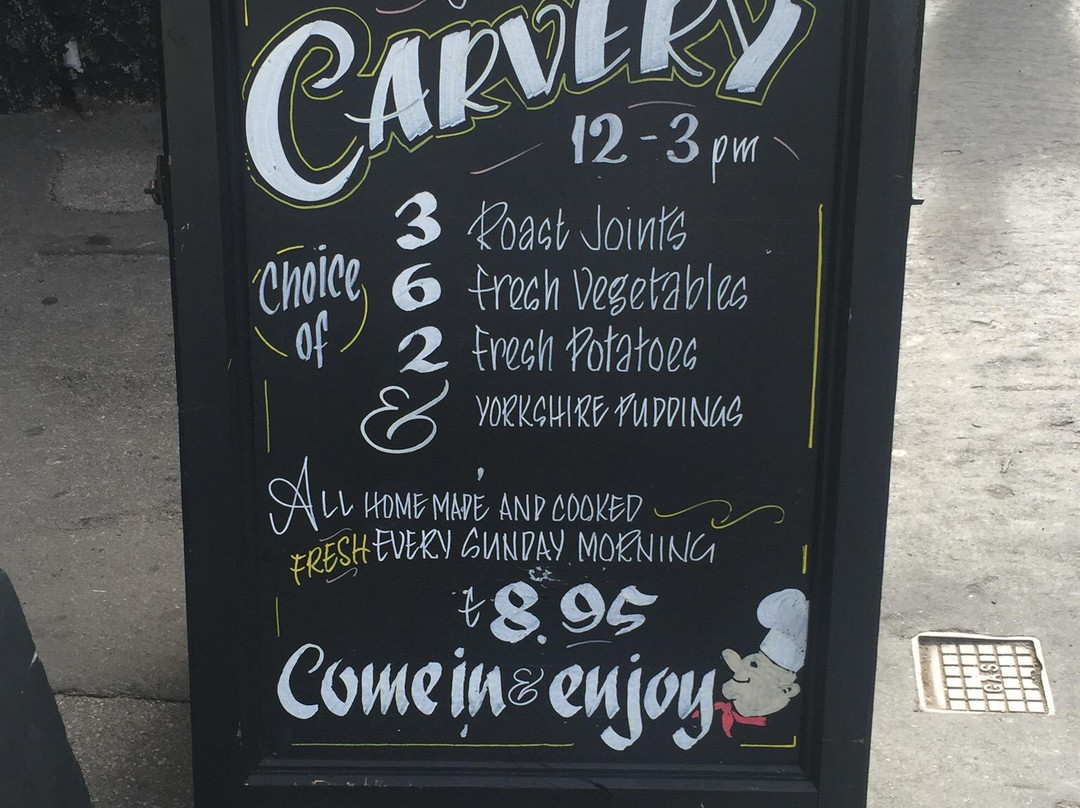 CARVERY
12-3 pm
Choice of
3 Roast Joints
6 Fresh Vegetables
2 Fresh Potatoes
& YORKSHIRE PUDDINGS
ALL HOME MADE AND COOKED
FRESH EVERY SUNDAY MORNING
£8.95
Come in & enjoy
GAS